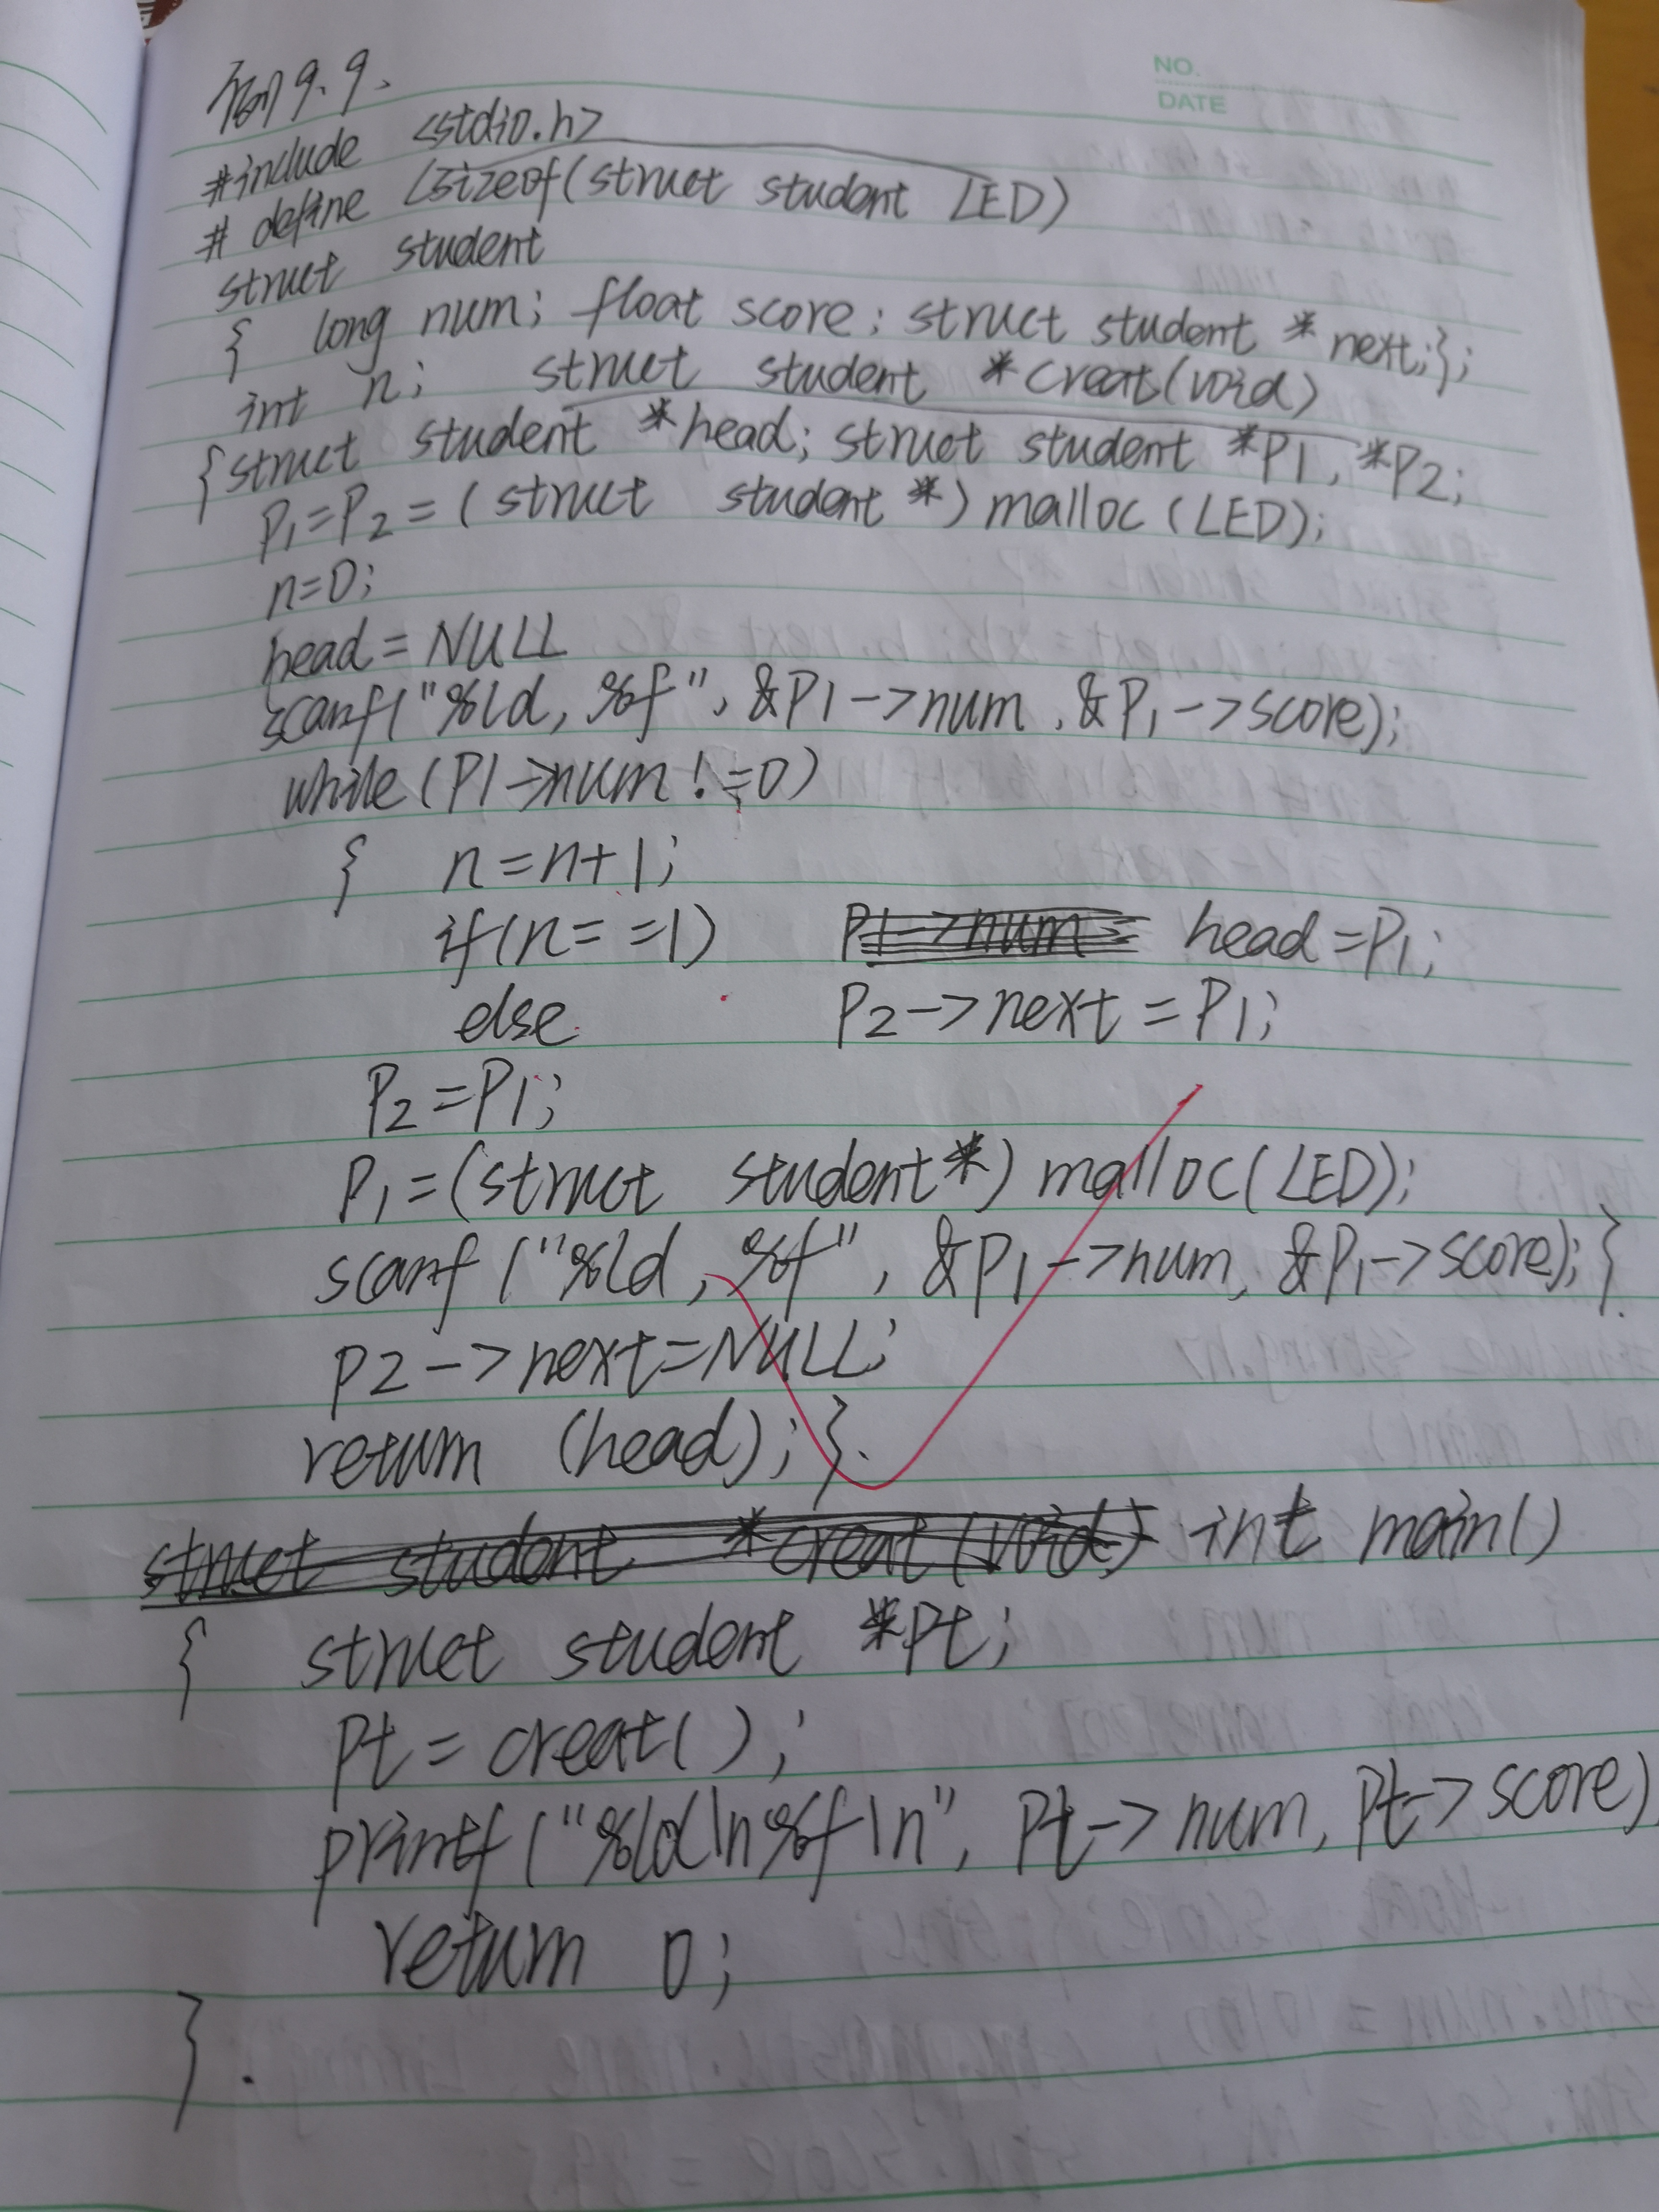 例9.9.
NO.
DATE
#include <stdio.h>
# define (sizeof(struct student LED)
struct student
{ long num; float score; struct student *next;};
int n; struct student *creat(void)
{struct student *head; struct student *P1, *P2;
P1=P2=(struct student *)malloc(LED);
n=0;
head=NULL
scanf("%ld, %f", &P1->num, &P1->score);
while(P1->num!=0)
{ n=n+1;
if(n==1) P1->num head=P1;
else P2->next=P1;
P2=P1;
P1=(struct student*)malloc(LED);
scanf("%ld, %f", &P1->num, &P1->score);}
P2->next=NULL;
return (head);}.
struct student *creat(void) int main()
{ struct student *Pt;
Pt=creat();
printf("%ld\n%f\n", Pt->num, Pt->score)
return 0;
}.